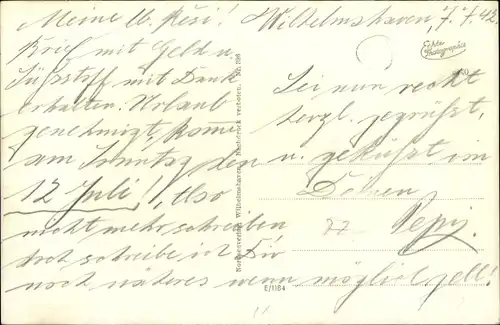 Meine lb. Resi! Wilhelmshaven, 7.7.42
Brief mit Geld u.
Süßstoff mit Dank
erhalten. Urlaub
genehmigt, komme
am Sonntag den
12 Juli!, Also
nicht mehr schreiben
trotz schreibe ich Dir
noch näheres wenn möglich gell!
Sei nun recht
herzl. gegrüßt,
u. geküßt im
Deinen
Pepi.
Echte
Photographie
Nordseeverlag Wilhelmshaven Nachdruck verboten. Nr. 296
E/1184